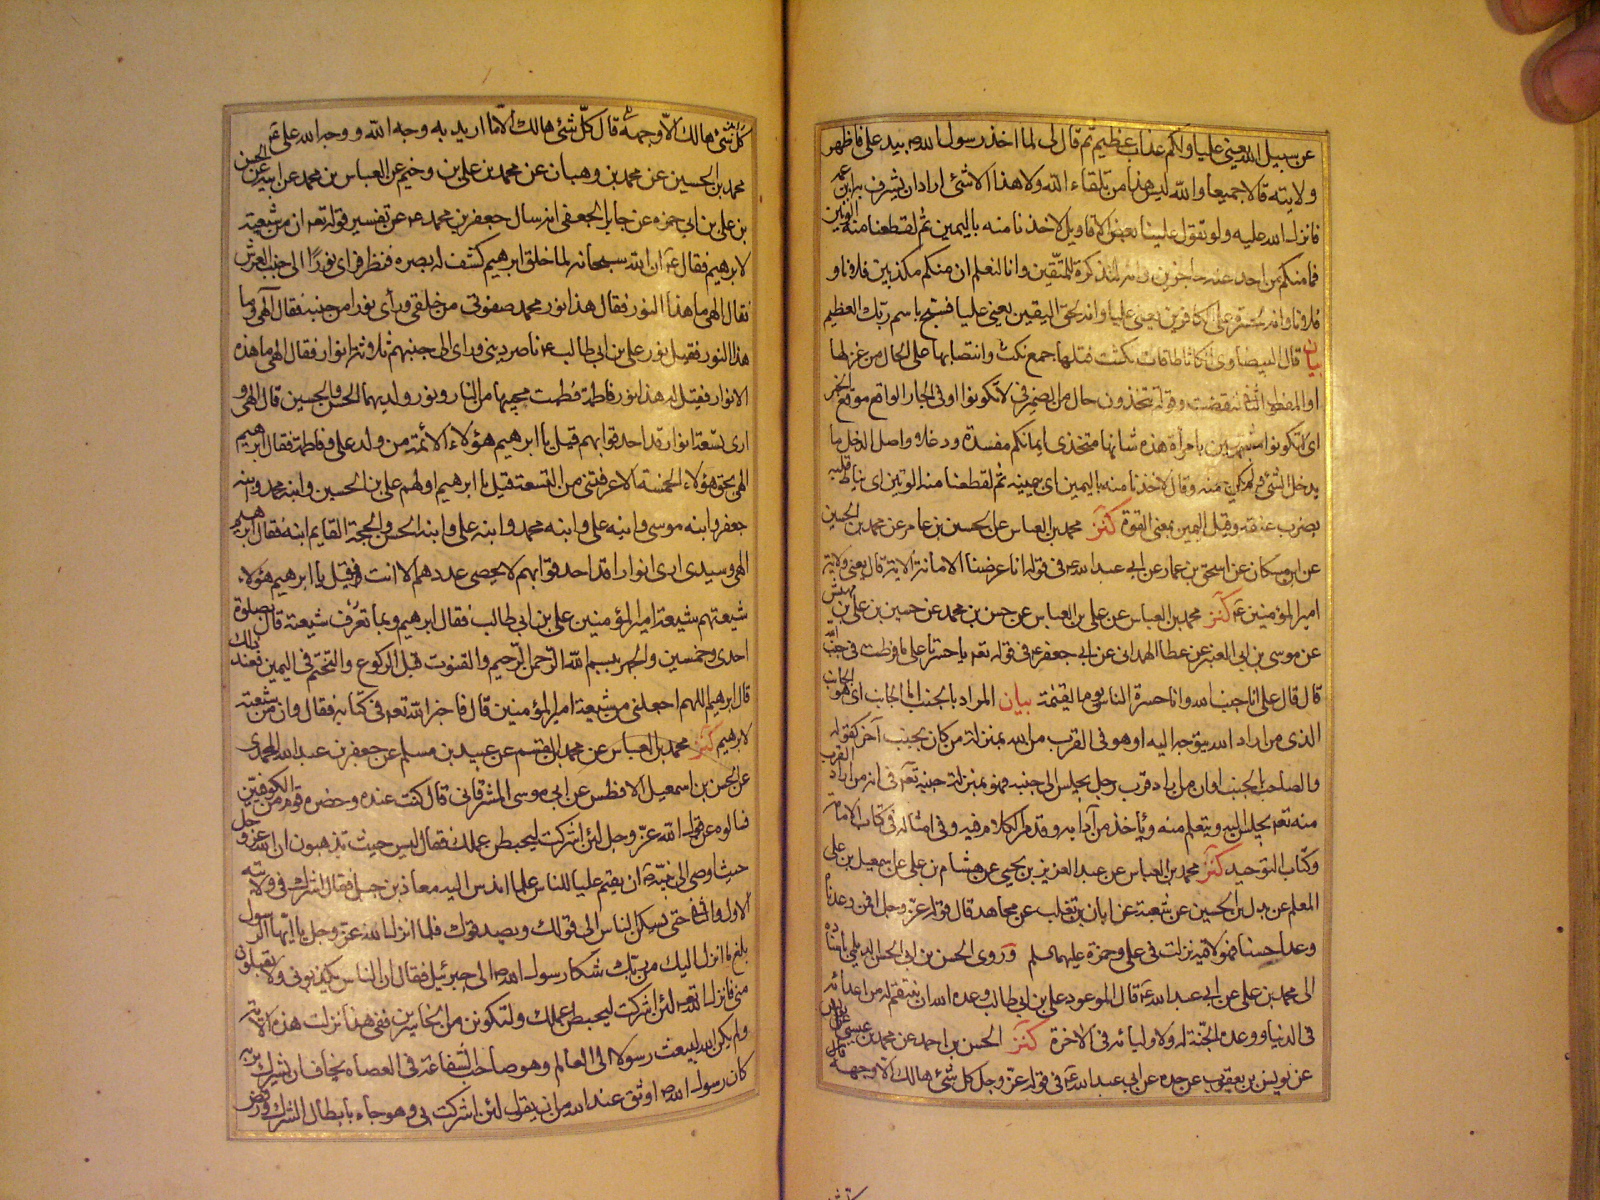 عن سبيل الله يعني عليا ولكم عذاب عظيم ثم قال لي لما اخذ رسول الله ص بيد علي فاظهر
ولايته قالا جميعا والله ليس هذا من تلقاء الله ولا هذا الا شئ اراد ان يشرف به ابن عمه
فانزل الله عليه ولو تقول علينا بعض الاقاويل لاخذنا منه باليمين ثم لقطعنا منه الوتين
فما منكم من احد عنه حاجزين وانه لتذكرة للمتقين وانا لنعلم ان منكم مكذبين فلانا و
فلانا وانه لحسرة على الكافرين يعني عليا وانه لحق اليقين يعني عليا فسبح باسم ربك العظيم
بيان قال البيضاوي انكاثا طاقات نكثت فتلها جمع نكث وانتصابها على الحال من غزلها
او المفعول الثاني لنقضت وقوله تتخذون حال من الضمير في لا تكونوا او في الجار الواقع موقع الخبر
اي لا تكونوا متشبهين بامرأة هذه شانها متخذي ايمانكم مفسدة ودخلا واصل الدخل ما
يدخل الشئ ولم يكن منه وقال لاخذنا منه باليمين اي بيمينه ثم لقطعنا منه الوتين اي نياط قلبه
بضرب عنقه وقيل اليمين بمعنى القوة كنز محمد بن العباس عن الحسين بن عامر عن محمد بن الحسين
عن ابن مسكان عن اسحق بن عمار عن ابي عبد الله ع في قوله انا عرضنا الامانة الاية قال يعني ولاية
امير المؤمنين ع كنز محمد بن العباس عن علي بن العباس عن حسن بن محمد عن حسين بن علي بن بهيش
عن موسى بن ابي الغدير عن عطا الهمداني عن ابي جعفر ع في قوله تع يا حسرتا على ما فرطت في جنب الله
قال قال علي انا جنب الله وانا حسرة الناس يوم القيمة بيان المراد بالجنب الجانب اي هو الجانب
الذي من اراد الله يتوجه اليه او هو في القرب من الله بمنزلة من كان بجنب آخر كقوله
والصاحب بالجنب او ان من اراد قرب رجل يجلس الى جنبه فهو بمنزلة جنبه تع في انه من اراد القرب
منه تع يجلس اليه ويتعلم منه ويأخذ من آدابه وقد مر الكلام فيه وفي امثاله في كتاب الامامة
وكتاب التوحيد كنز محمد بن العباس عن عبد العزيز بن يحيى عن هشام بن علي عن اسمعيل بن علي
المعلم عن بدل بن الحسين عن شعبة عن ابان بن تغلب عن مجاهد قال قوله عز وجل افمن وعدناه
وعدا حسنا فهو لاقيه نزلت في علي وحمزة عليهما السلم وروى الحسن بن ابي الحسن الديلمي باسناده
الى محمد بن علي عن ابي عبد الله ع قال الموعود علي بن ابي طالب وعده الله ان ينتقم له من اعدائه
في الدنيا ووعده الجنة له ولاوليائه في الاخرة كنز الحسن بن احمد عن محمد بن عيسى عن يونس
عن يونس بن يعقوب عن جده عن ابي عبد الله ع في قوله عز وجل كل شئ هالك الا وجهه قال
كل شئ هالك الا وجهه قال كل شئ هالك الا ما اريد به وجه الله ووجه الله علي ع
محمد بن الحسين عن محمد بن وهبان عن محمد بن علي بن رحيم عن العباس بن محمد عن ابيه عن الحسن
بن علي بن ابي حمزه عن جابر الجعفي انه سال جعفر بن محمد ع عن تفسير قوله تع وان من شيعته
لابرهيم فقال ع ان الله سبحانه لما خلق ابرهيم كشف له بصره فنظر فراى نورا الى جنب العرش
فقال الهي ما هذا النور فقال هذا نور محمد صفوتي من خلقي ورأى نورا من جنبه فقال الهي وما
هذا النور فقيل نور علي بن ابي طالب ع ناصر ديني وراى الى جنبهم ثلاثة انوار فقال الهي ما هذه
الانوار فقيل له هذا نور فاطمة فطمت محبيها من النار ونور ولديها الحسن والحسين قال الهي و
ارى تسعة انوار قد احدقوا بهم قيل يا ابرهيم هؤلاء الائمة من ولد علي وفاطمة فقال ابرهيم
الهي بحق هؤلاء الخمسة الا عرفتني من التسعة قيل يا ابرهيم اولهم علي بن الحسين وابنه محمد وابنه
جعفر وابنه موسى وابنه علي وابنه محمد وابنه علي وابنه الحسن والحجة القايم ابنه فقال ابرهيم
الهي وسيدي ارى انوارا قد احدقوا بهم لا يحصي عددهم الا انت قيل يا ابرهيم هؤلاء
شيعتهم شيعة امير المؤمنين علي بن ابي طالب فقال ابرهيم وبما تعرف شيعته قال بصلوة
احدى وخمسين والجهر ببسم الله الرحمن الرحيم والقنوت قبل الركوع والتختم في اليمين فعند ذلك
قال ابرهيم اللهم اجعلني من شيعة امير المؤمنين قال فاخبر الله تع في كتابه فقال وان من شيعته
لابرهيم كنز محمد بن العباس عن محمد بن القسم عن عبيد بن مسلم عن جعفر بن عبد الله المحمدي
عن الحسن بن اسمعيل الافطس عن ابي موسى المشرقاني قال كنت عنده وحضره قوم من الكوفيين
فسالوه عن قول الله عز وجل لئن اشركت ليحبطن عملك فقال ليس حيث تذهبون ان الله عز وجل
حيث اوصى الى نبيه ص ان يقيم عليا للناس علما اندس اليه معاذ بن جبل فقال اشرك في ولايته
الاول والثاني حتى يسكن الناس الى قولك ويصدقوك فلما انزل الله عز وجل يا ايها الرسول
بلغ ما انزل اليك من ربك شكا رسول الله ص الى جبرئيل فقال ان الناس يكذبوني ولا يقبلون
مني فانزل الله تع لئن اشركت ليحبطن عملك ولتكونن من الخاسرين ففي هذا نزلت هذه الاية
ولم يكن الله ليبعث رسولا الى العالم وهو صاحب الشفاعة في العصاة يخاف ان يشرك بربه
كان رسول الله ص اوثق عند الله من ان يقول لئن اشركت بي وهو جاء بابطال الشرك ورفض